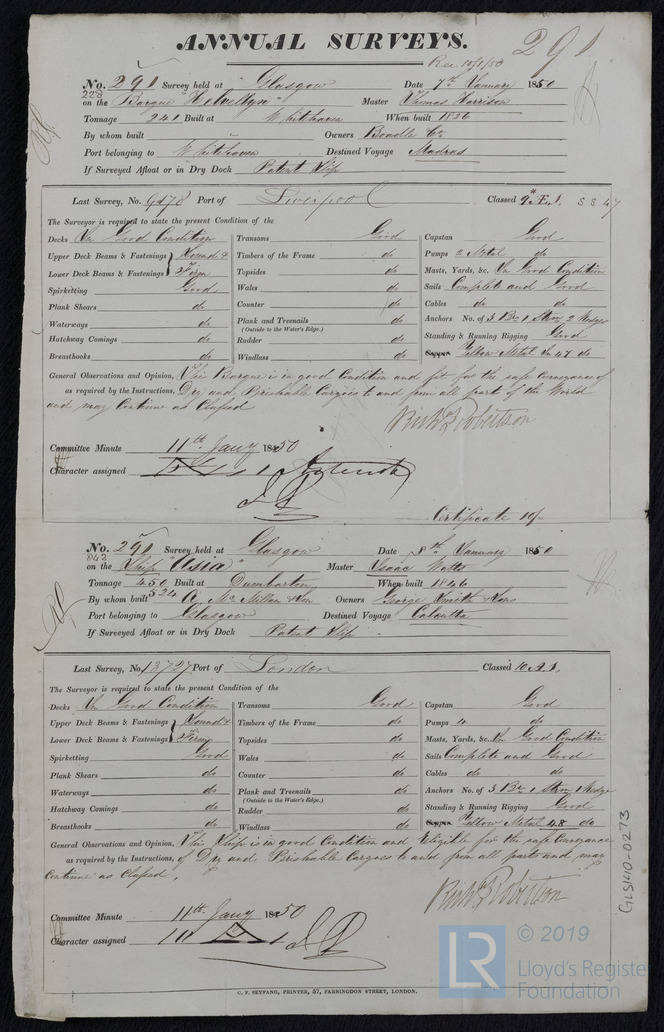 ANNUAL SURVEYS.
291
Rec 10/1/50
No. 291 Survey held at Glasgow Date 7th January 1850
228
on the Barque "Helvellyn" Master Thomas Harrison
Tonnage 241 Built at Whitehaven When built 1826
By whom built " Owners Beadle & Co
Port belonging to Whitehaven Destined Voyage Madras
If Surveyed Afloat or in Dry Dock Patent Slip
Last Survey, No. 9478 Port of Liverpool Classed *Æ.1. SS 47
The Surveyor is required to state the present Condition of the
Decks In Good Condition Transoms Good Capstan Good
Upper Deck Beams & Fastenings Sound & Timbers of the Frame do Pumps 2 Metal do
Lower Deck Beams & Fastenings Firm Topsides do Masts, Yards, &c. In Good Condition
Spirketting Good Wales do Sails Complete and Good
Plank Shears do Counter do Cables do do
Waterways do Plank and Treenails do Anchors No. of 3 Br 1 Strm 2 Kedge
(Outside to the Water's Edge.)
Hatchway Comings do Rudder do Standing & Running Rigging Good
Breasthooks do Windlass do Yellow Metal In 47 do
General Observations and Opinion, This Barque is in good Condition and fit for the safe Conveyance of
as required by the Instructions, Dry and Perishable Cargoes to and from all part of the World
and may Continue as Classed
Committee Minute 11th Jany 1850
Character assigned
Certificate 10/-
No. 291 Survey held at Glasgow Date 8th January 1850
on the Ship "Asia" Master Isaac Watts
Tonnage 450 Built at Dumbarton When built 1846
524
By whom built A. McMillan & Son Owners George Smith & Sons
Port belonging to Glasgow Destined Voyage Calcutta
If Surveyed Afloat or in Dry Dock Patent Slip
Last Survey, No. 13727 Port of London Classed 10 A.1.
The Surveyor is required to state the present Condition of the
Decks In Good Condition Transoms Good Capstan Good
Upper Deck Beams & Fastenings Sound & Timbers of the Frame do Pumps do
Lower Deck Beams & Fastenings Firm Topsides do Masts, Yards, &c. In Good Condition
Spirketting Good Wales do Sails Complete and Good
Plank Shears do Counter do Cables do do
Waterways do Plank and Treenails do Anchors No. of 3 Br 1 Strm 1 Kedge
(Outside to the Water's Edge.)
Hatchway Comings do Rudder do Standing & Running Rigging Good
Breasthooks do Windlass do Yellow Metal 48 do
General Observations and Opinion, This Ship is in good Condition and Eligible for the safe Conveyance
as required by the Instructions, of Dry and Perishable Cargoes to and from all parts and may
Continue as Classed.
Committee Minute 11th Jany 1850
Character assigned 10 A 1
C. F. SEYFANG, PRINTER, 57, FARRINGDON STREET, LONDON.
GLS140-0273
LR
© 2019
Lloyd's Register
Foundation